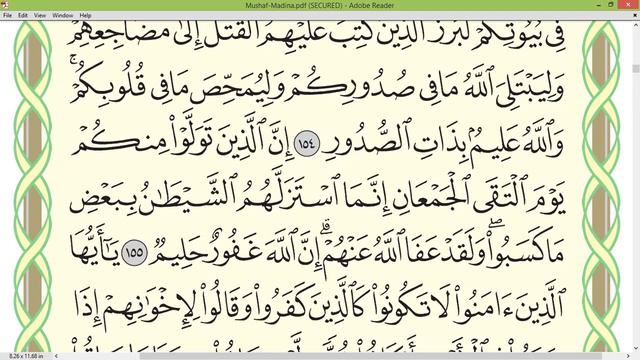 Mushaf-Madina.pdf (SECURED) - Adobe Reader
File Edit View Window Help
فِي بُيُوتِكُمْ لَبَرَزَ الَّذِينَ كُتِبَ عَلَيْهِمُ الْقَتْلُ إِلَىٰ مَضَاجِعِهِمْ
وَلِيَبْتَلِيَ اللَّهُ مَا فِي صُدُورِكُمْ وَلِيُمَحِّصَ مَا فِي قُلُوبِكُمْ ۗ
وَاللَّهُ عَلِيمٌ بِذَاتِ الصُّدُورِ ١٥٤ إِنَّ الَّذِينَ تَوَلَّوْا مِنكُمْ
يَوْمَ الْتَقَى الْجَمْعَانِ إِنَّمَا اسْتَزَلَّهُمُ الشَّيْطَٰنُ بِبَعْضِ
مَا كَسَبُوا ۖ وَلَقَدْ عَفَا اللَّهُ عَنْهُمْ ۗ إِنَّ اللَّهَ غَفُورٌ حَلِيمٌ ١٥٥ يَٰٓأَيُّهَا
الَّذِينَ ءَامَنُوا لَا تَكُونُوا كَالَّذِينَ كَفَرُوا وَقَالُوا لِإِخْوَٰنِهِمْ إِذَا
8.26 x 11.68 in